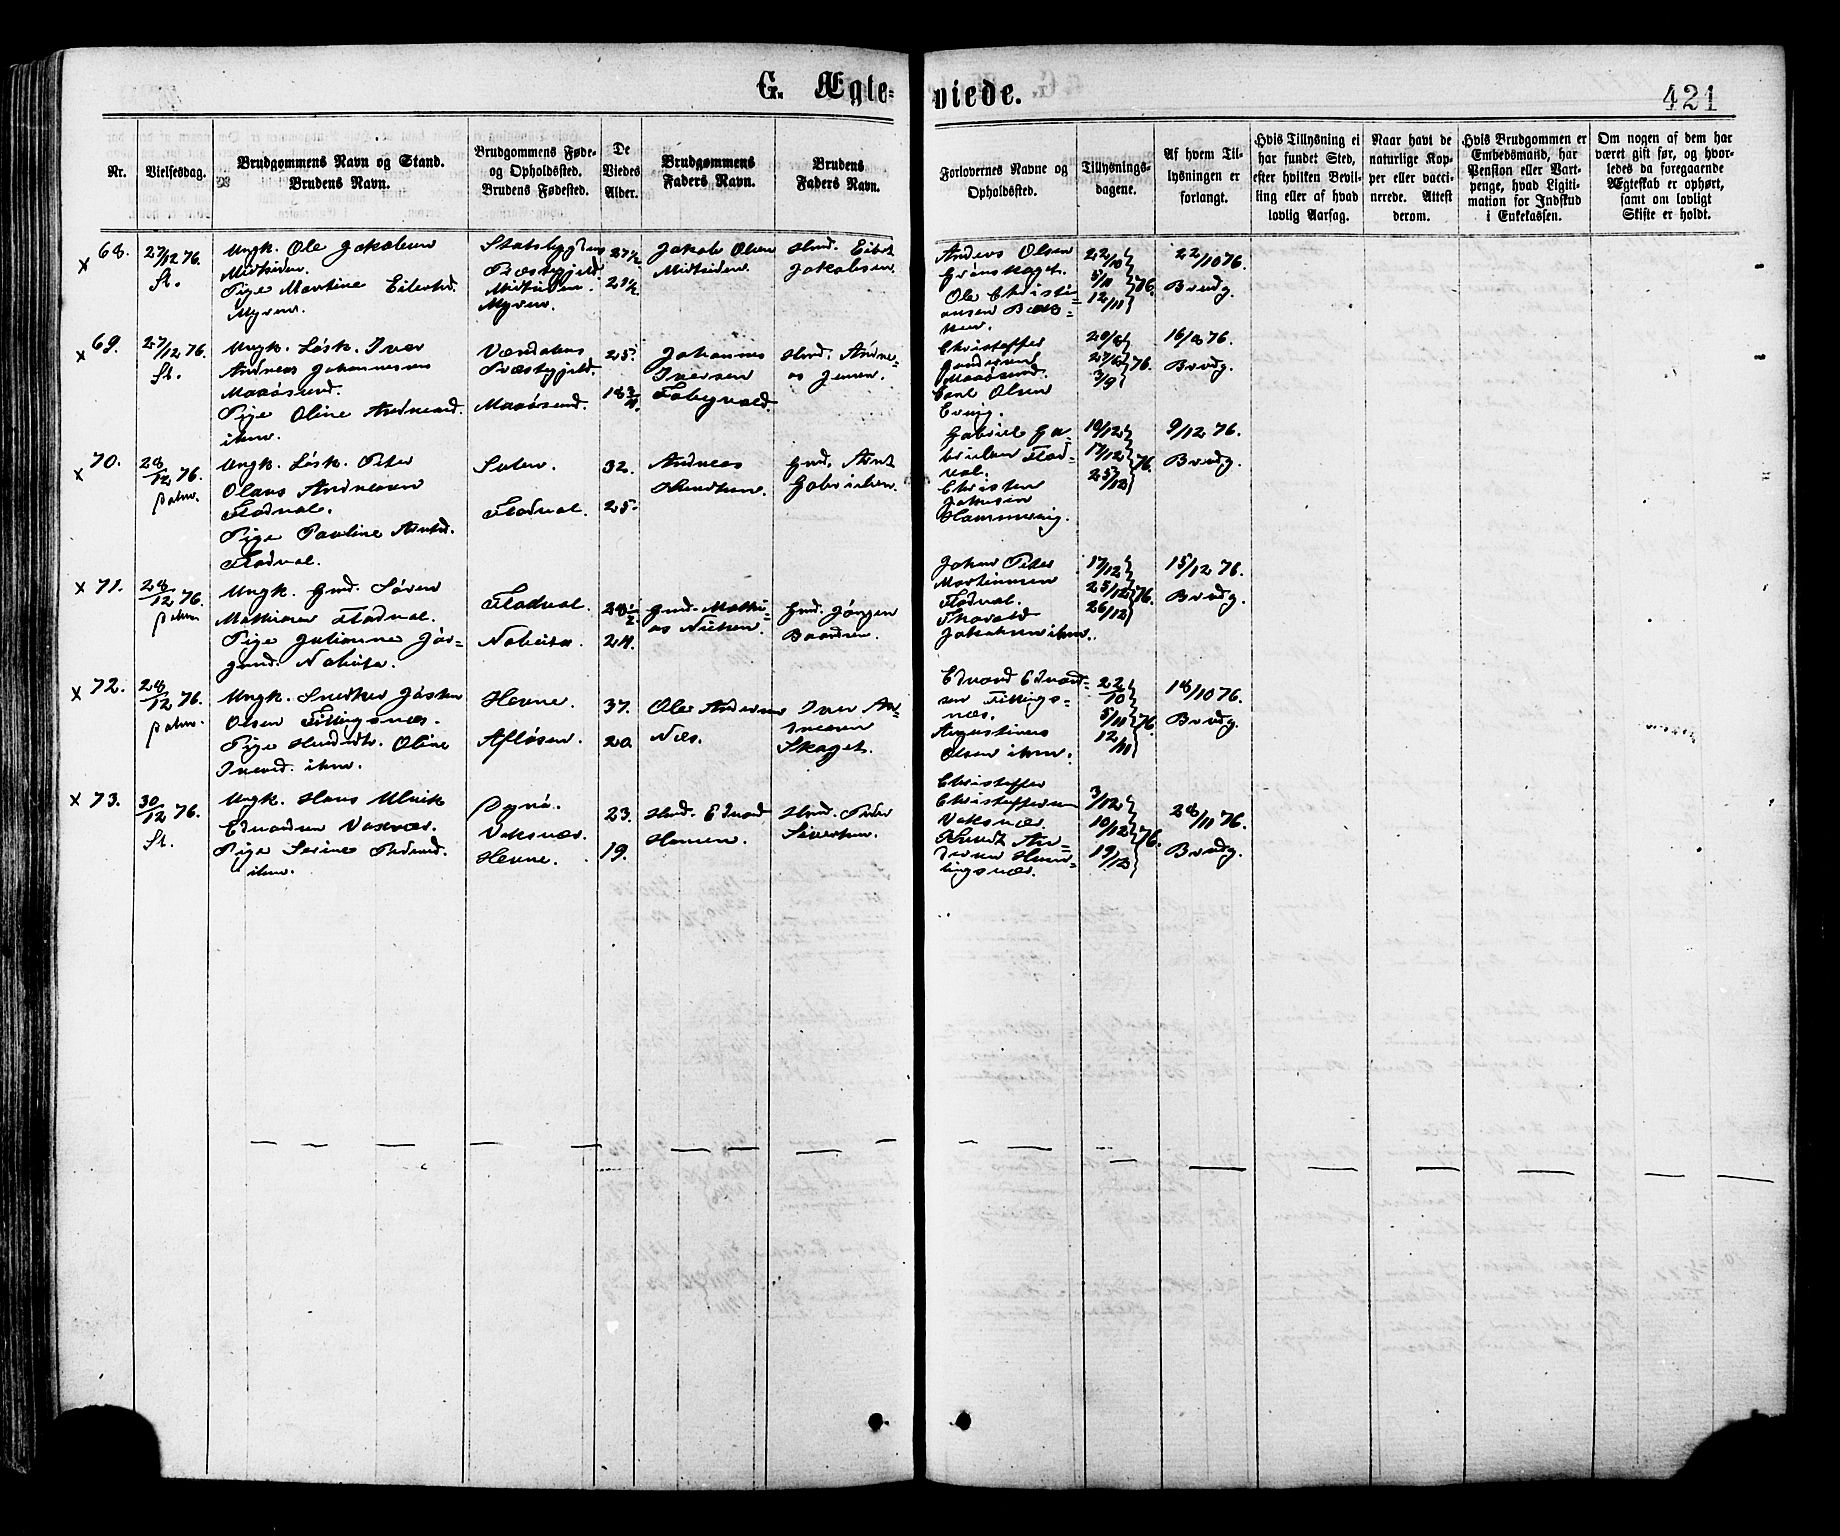 G. Ægte=
viede.
421
Nr.
Vielsesdag.
Brudgommens Navn og Stand.
Brudens Navn.
Brudgommens Føde-
og Opholdssted.
Brudens Fødested.
De
Viedes
Alder.
Brudgommens
Faders Navn.
Brudens
Faders Navn.
Forlovernes Navne og
Opholdssted.
Tillysnings-
dagene.
Af hvem Til-
lysningen er
forlangt.
Hvis Tillysning ei
har fundet Sted,
efter hvilken Bevil-
ling eller af hvad
lovlig Aarsag.
Naar havt de
naturlige Kop-
per eller vacci-
nerede. Attest
derom.
Hvis Brudgommen er
Embedsmand, har
Pension eller Vart-
penge, hvad Ligiti-
mation for Indskud
i Enkekassen.
Om nogen af dem har
været gift før, og hvor-
ledes da foregaaende
Ægteskab er ophørt,
samt om lovligt
Skifte er holdt.
x 68.
27/12 76.
St.
Ungk. Ole Jakobsen
Midtsiden.
Pige Martine Eilertsd.
Myren.
Stadsbygdens
Præstegjeld
Midtsiden.
Myren.
27½
21½
Jakob Olsen
Midtsiden.
Hmd. Eilert
Jakobsen.
Anders Olsen
Grønskaget.
Ole Christi-
ansen
22/10
5/11 76.
12/11
22/10 76.
Brudg.
x 69.
27/12 76.
St.
Ungk. Løsk. Iver
Andreas Johannesen
Maaøsund.
Pige Oline Andreasd.
ibm.
Værdalens
Præstegjeld.
Maaøsund.
25.
18¾.
Johannes
Iversen
Hmd. Andre-
as Jensen.
Christoffer
Maaøsund.
Carl Olsen
20/8
27/8 76.
3/9
16/8 76.
Brudg.
x 70.
28/12 76.
Ungk. Løsk. Peter
Olaus Andreasen
Flodval.
Pige Pauline Arntsd.
Flodval.
Flodval.
32.
25.
Andreas
Knudsen.
Gmd. Arnt
Gabrielsen.
Gabriel Ga-
brielsen Flod-
val.
Christen
Jakobsen
Hammervig.
10/12
17/12 76.
25/12
9/12 76.
Brudg.
x 71.
28/12 76.
Ungk. Gmd. Søren
Mathiasen Flodval.
Pige Julianne Jør-
gensd. Nabeita.
Flodval.
Nabeita.
28½
24.
Gmd. Mathi-
as Nielsen.
Gmd. Jørgen
Baardsen.
Johan Peter
Martinusen
Flodval.
Jakobsen ibm.
17/12
25/12 76.
26/12
15/12 76.
Brudg.
x 72.
28/12 76.
Ungk. Sverker Jøsten
Olsen Fillingsnæs.
Oline
Iversd. ibm.
Hevne.
Afløsen.
37.
20.
Ole Andersen
Næs.
Iver An-
dersen
Skaget.
Edvard Edvard-
sen Fillings-
næs.
Augustinus
Olsen ibm.
22/10
5/11 76.
12/11
18/10 76.
Brudg.
x 73.
30/12 76.
St.
Ungk. Hans Ulrik
Edvardsen Vaxvær.
Pige Serine Pedersd.
ibm.
Dyrø.
Vaksvær.
Hevne.
23.
19.
Hmd. Edvard
Hansen.
Hmd. Peder
Sivertsen.
Christoffer
Christoffersen
Vaksvær.
Knudt An-
dersen Hem-
lingsvær.
3/12
10/12 76.
19/12
28/11 76.
Brudg.